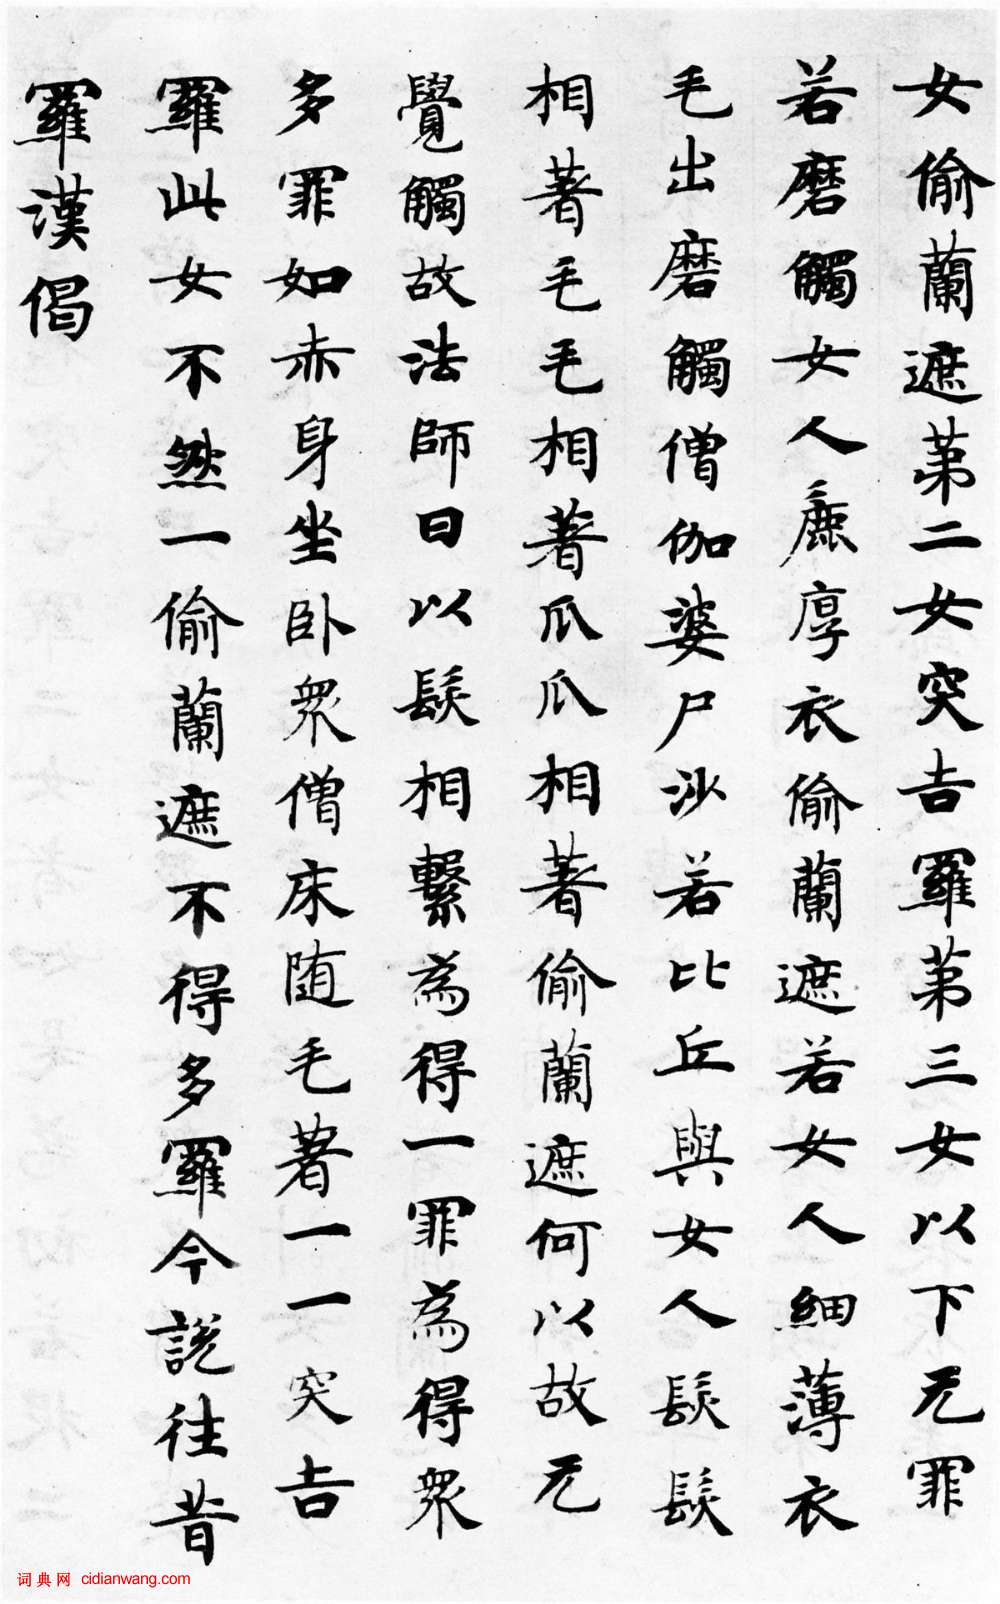 女偷蘭遮第二女突吉羅第三女以下无罪
若磨觸女人麁厚衣偷蘭遮若女人細薄衣
毛出磨觸僧伽婆尸沙若比丘與女人髮髮
相著毛毛相著爪爪相著偷蘭遮何以故无
覺觸故法師曰以髮相繫為得一罪為得眾
多罪如赤身坐卧眾僧床随毛著一一突吉
羅此女不然一偷蘭遮不得多羅今說往昔
羅漢偈
词典网 cidianwang.com